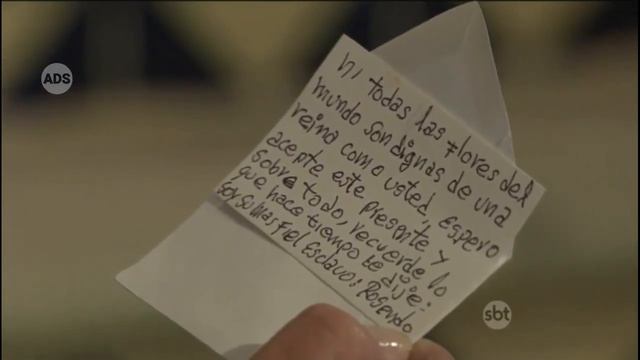 ADS
Ni todas las Flores del
mundo son dignas de una
reina como usted, espero
acepte este presente y
sobre todo, recuerde lo
que hace tiempo te dije:
soy su mas Fiel Esclavo: Rosendo
sbt